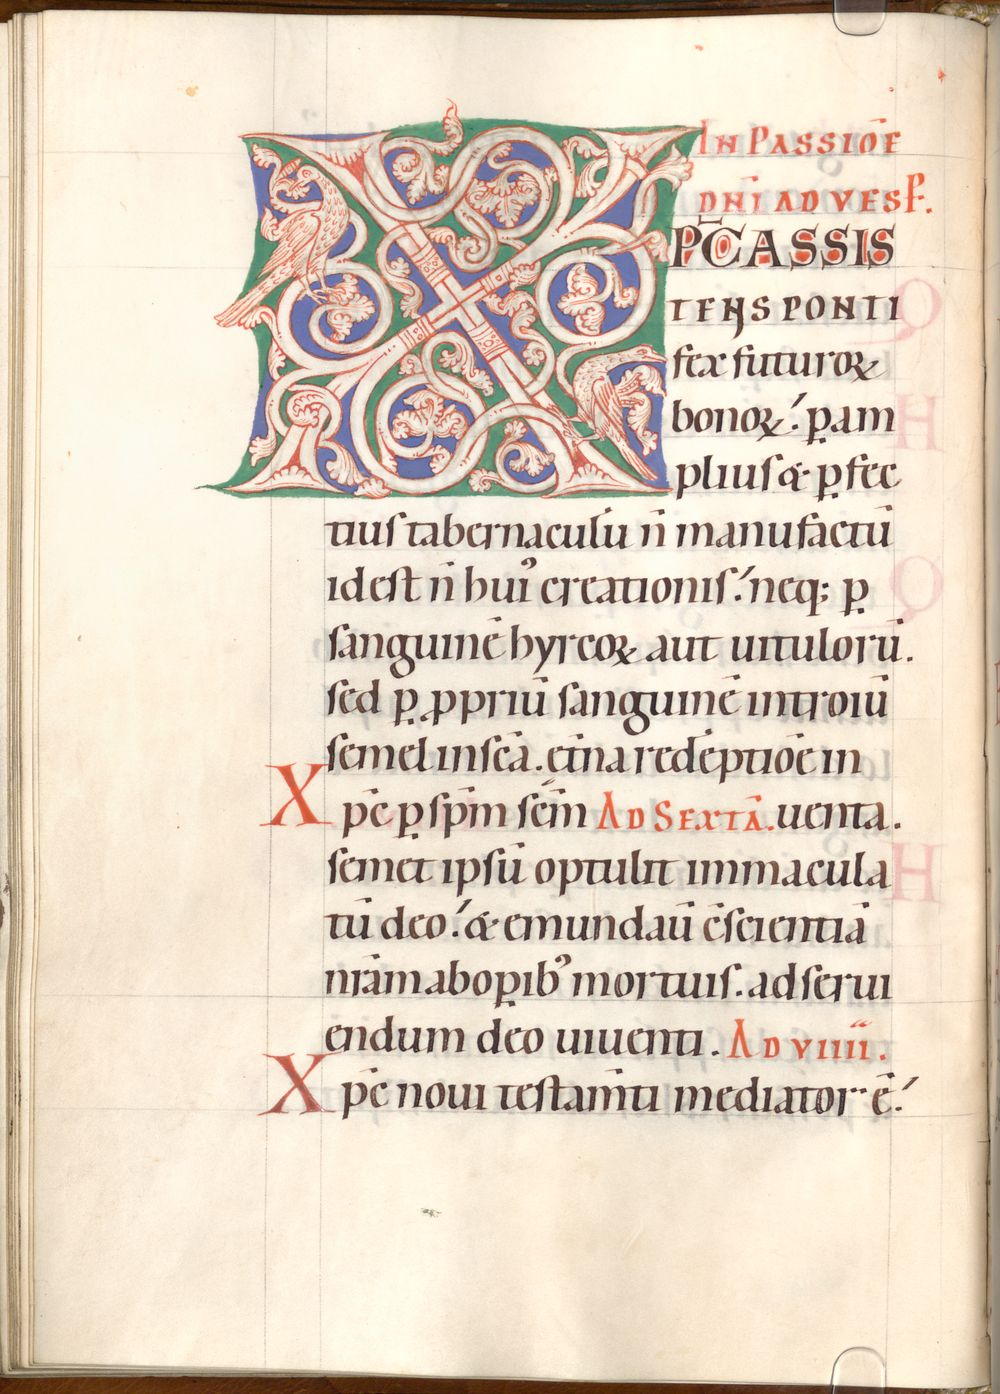 IN PASSIOE᷎
DN̄I AD VESP̄.
XPC̄ ASSIS
TENS PONTI
fex futuroꝝ
bonoꝝ. ꝑ am
plius & ꝑfec
tius tabernaculū n̄ manufactū
id est n̄ huiꝰ creationis. neq; ꝑ
sanguinē hyrcoꝝ aut uitulorū.
sed ꝑ ꝓpriū sanguinē introiū
semel in sc̄a. et̄na redēptiōe in
Xpc̄ ꝑ sp̄m sc̄m AD SEXTĀ. uenta.
semet ipsū optulit immacula
tū deo. & emundaū c̄scientiā
nr̄am ab oꝑibꝰ mortuis. ad serui
endum deo uiuenti. AD VIIII.
Xpc̄ noui testam̄ti mediator ē.